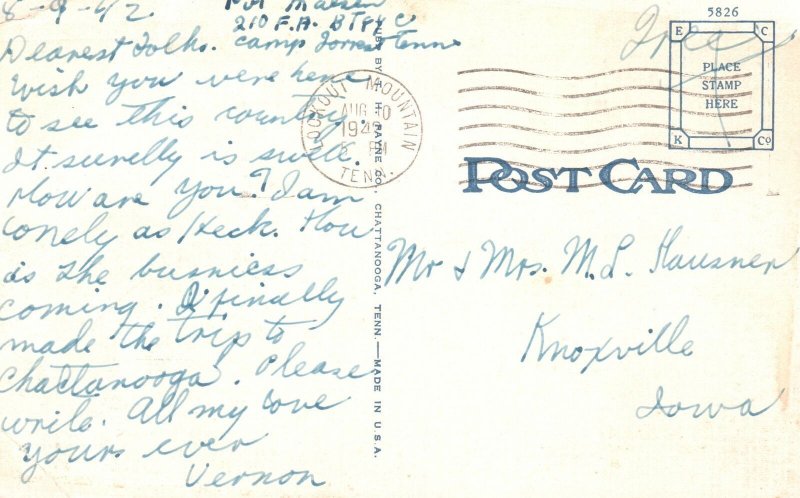 8-9-42
Pvt
210 F.A. BTRY C
Camp Forrest Tenn
Dearest Folks.
Wish you were here
to see this country.
It surelly is swell.
How are you? I am
lonely as Heck. How
is the busniess
coming. I finally
made the trip to
Chattanooga. Please
write. All my love
yours ever
Vernon
PUB. BY W. H. PAYNE CO., CHATTANOOGA, TENN.—MADE IN U.S.A.
LOOKOUT MOUNTAIN
AUG 10
1942
5 PM
TENN.
Free
5826
E C
PLACE
STAMP
HERE
K Co
POST CARD
Mr & Mrs. M. L. Hausner
Knoxville
Iowa